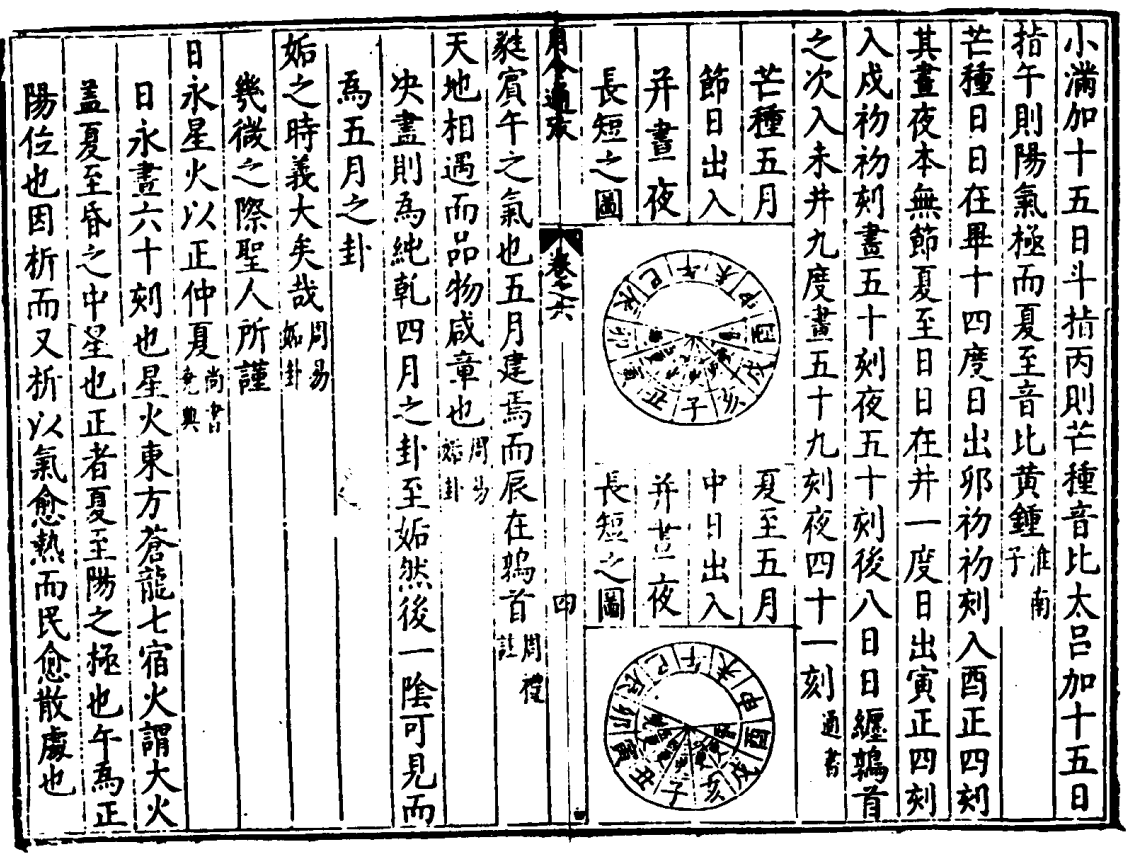 小滿加十五日斗指丙則芒種音比太呂加十五日
指午則陽氣極而夏至音比黃鍾淮南子
芒種日日在畢十四度日出卯初初刻入酉正四刻
其晝夜本無節夏至日日在井一度日出寅正四刻
入戍初初刻晝五十刻夜五十刻後八日日纏鶉首
之次入未井九度晝五十九刻夜四十一刻通書
芒種五月
節日出入
并晝夜
長短之圖
午未申酉戌亥子丑寅卯辰巳
夏至五月
中日出入
并晝夜
長短之圖
午未申酉戌亥子丑寅卯辰巳
月令通攷
卷之六
四
蕤賓午之氣也五月建焉而辰在鶉首周禮註
天地相遇而品物咸章也周易姤卦
決盡則為純乾四月之卦至姤然後一陰可見而
為五月之卦
姤之時義大矣哉周易姤卦
幾微之際聖人所謹
日永星火以正仲夏尚書堯典
日永晝六十刻也星火東方蒼龍七宿火謂大火
蓋夏至昏之中星也正者夏至陽之極也午為正
陽位也因析而又析以氣愈熱而民愈散處也